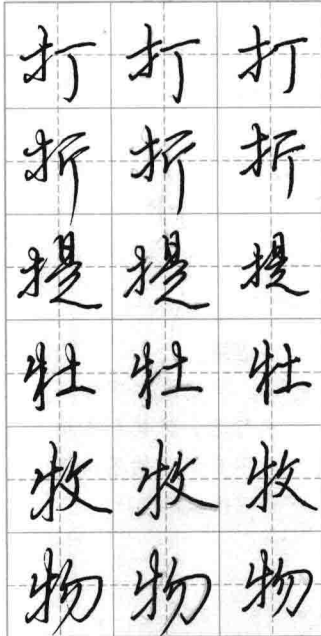 打打打
折折折
提提提
牡牡牡
牧牧牧
物物物